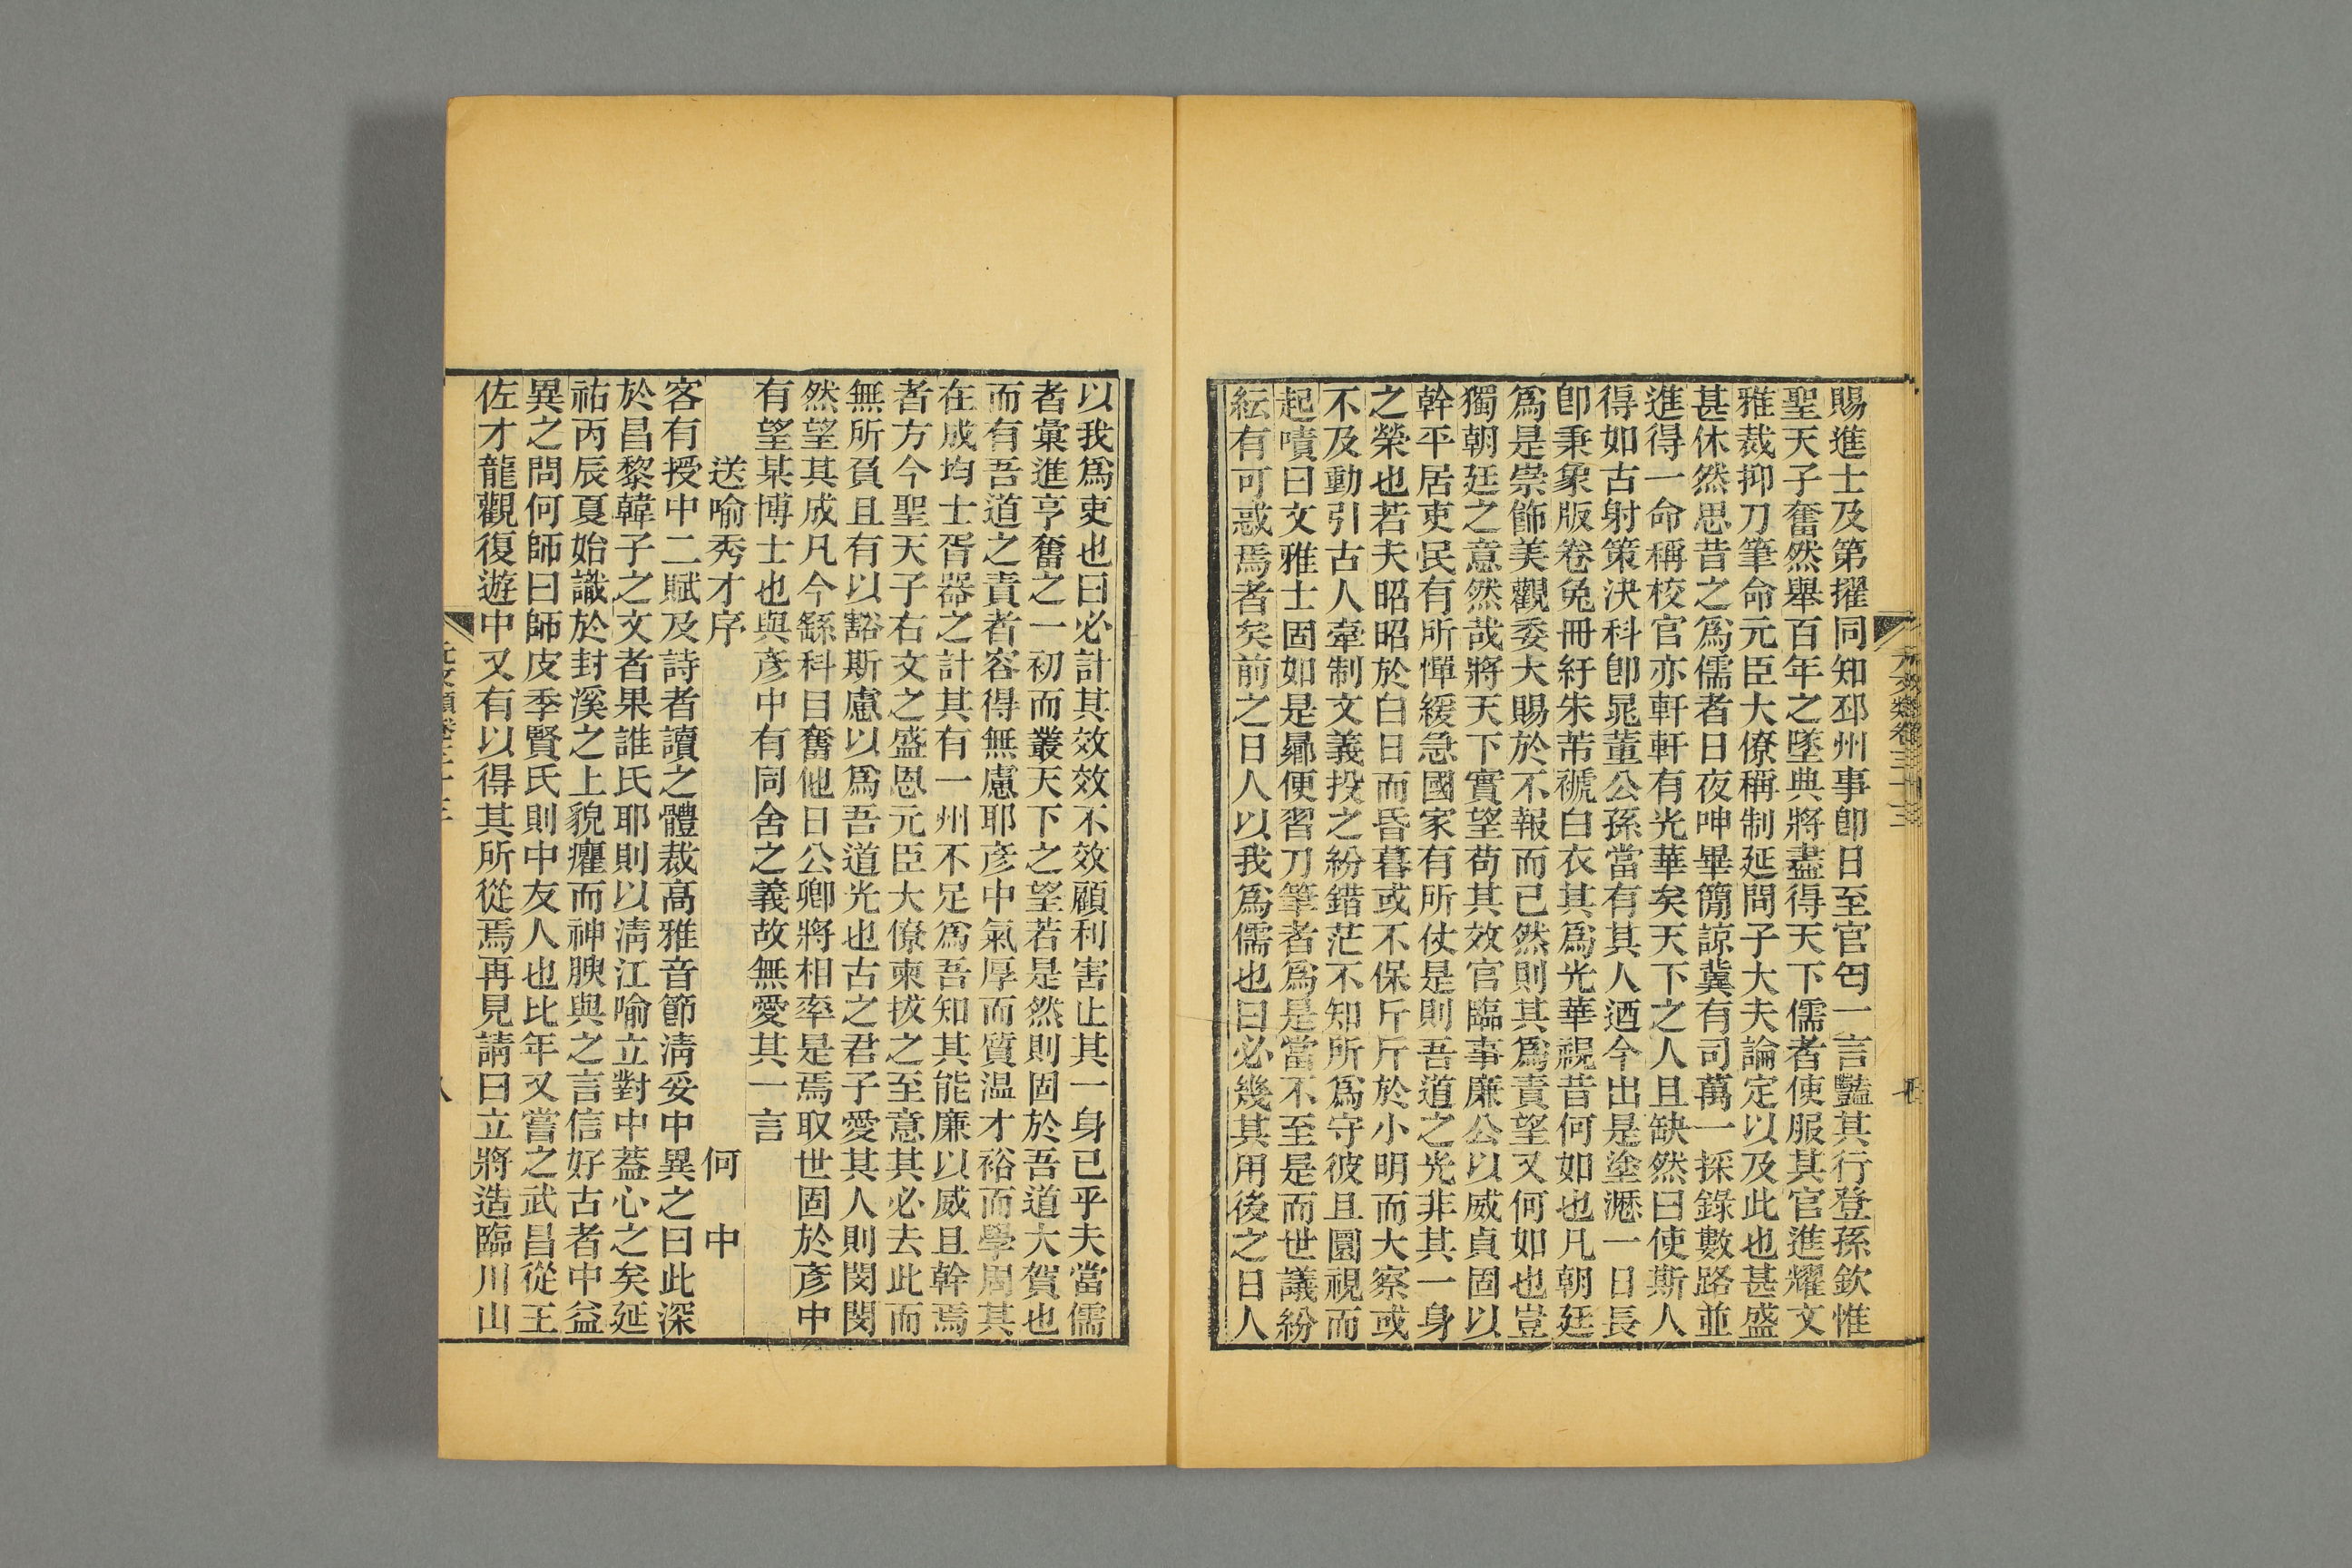 元文類卷三十三
賜進士及第擢同知邳州事卽日至官匄一言豔其行登孫欽惟
聖天子奮然舉百年之墜典將盡得天下儒者使服其官進耀文
雅裁抑刀筆命元臣大僚稱制延問子大夫論定以及此也甚盛
甚休然思昔之爲儒者日夜呻畢簡諒冀有司萬一採錄數路並
進得一命稱校官亦軒軒有光華矣天下之人且缺然曰使斯人
得如古射策決科卽晁董公孫當有其人迺今出是塗遲一日長
卽秉象版卷兔冊紆朱芾褫白衣其爲光華視昔何如也凡朝廷
爲是崇飾美觀委大賜於不報而已然則其爲責望又何如也豈
獨朝廷之意然哉將天下實望苟其效官臨事廉公以威貞固以
幹平居吏民有所憚緩急國家有所仗是則吾道之光非其一身
之榮也若夫昭昭於白日而昏暮或不保斤斤於小明而大察或
不及動引古人牽制文義投之紛錯茫不知所爲守彼且圜視而
起嘖曰文雅士固如是曏便習刀筆者爲是當不至是而世議紛
紜有可惑焉者矣前之日人以我爲儒也曰必幾其用後之日人
以我爲吏也曰必計其效效不效顧利害止其一身已乎夫當儒
者彙進亨奮之一初而叢天下之望若是然則固於吾道大賀也
而有吾道之責者容得無慮耶彥中氣厚而質温才裕而學周其
在成均士胥器之計其有一州不足爲吾知其能廉以威且幹焉
者方今聖天子右文之盛恩元臣大僚柬拔之至意其必去此而
無所負且有以豁斯慮以爲吾道光也古之君子愛其人則閔閔
然望其成凡今繇科目奮他日公卿將相率是焉取世固於彥中
有望某博士也與彥中有同舍之義故無愛其一言
送喻秀才序 何中
客有授中二賦及詩者讀之體裁高雅音節淸妥中異之曰此深
於昌黎韓子之文者果誰氏耶則以淸江喻立對中蓋心之矣延
祐丙辰夏始識於封溪之上貌癯而神腴與之言信好古者中益
異之問何師曰師皮季賢氏則中友人也比年又嘗之武昌從王
佐才龍觀復遊中又有以得其所從焉再見請曰立將造臨川山
元文類卷三十三
八